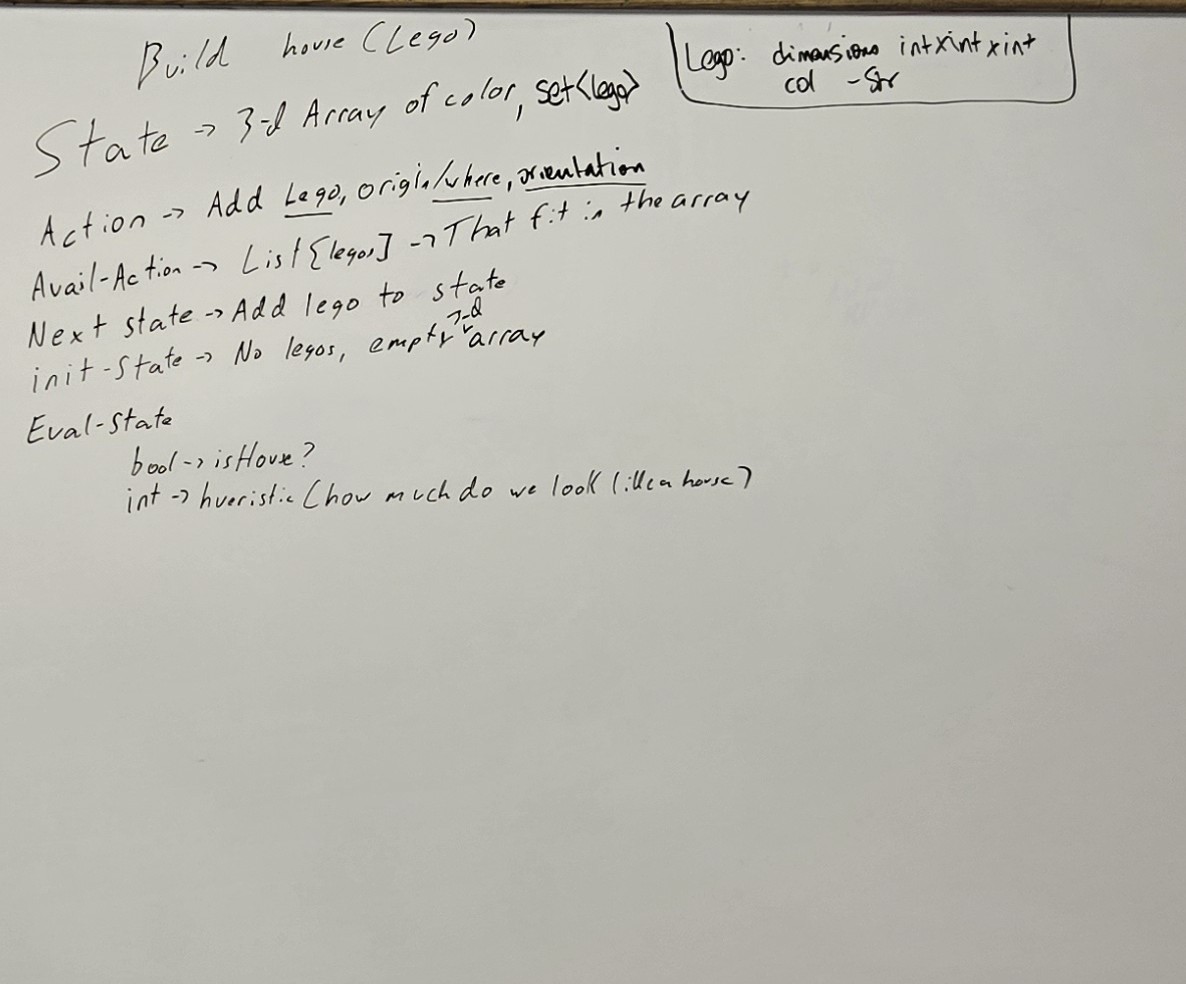 Build house (Lego)
Lego: dimensions int x int x int
col - Str
State -> 3-d Array of color, set<lego>
Action -> Add Lego, origin/where, orientation
Avail-Action -> List[legos] -> That fit in the array
Next state -> Add lego to state
init-State -> No legos, empty 3-d array
Eval-State
bool -> isHouse?
int -> hueristic (how much do we look like a house)